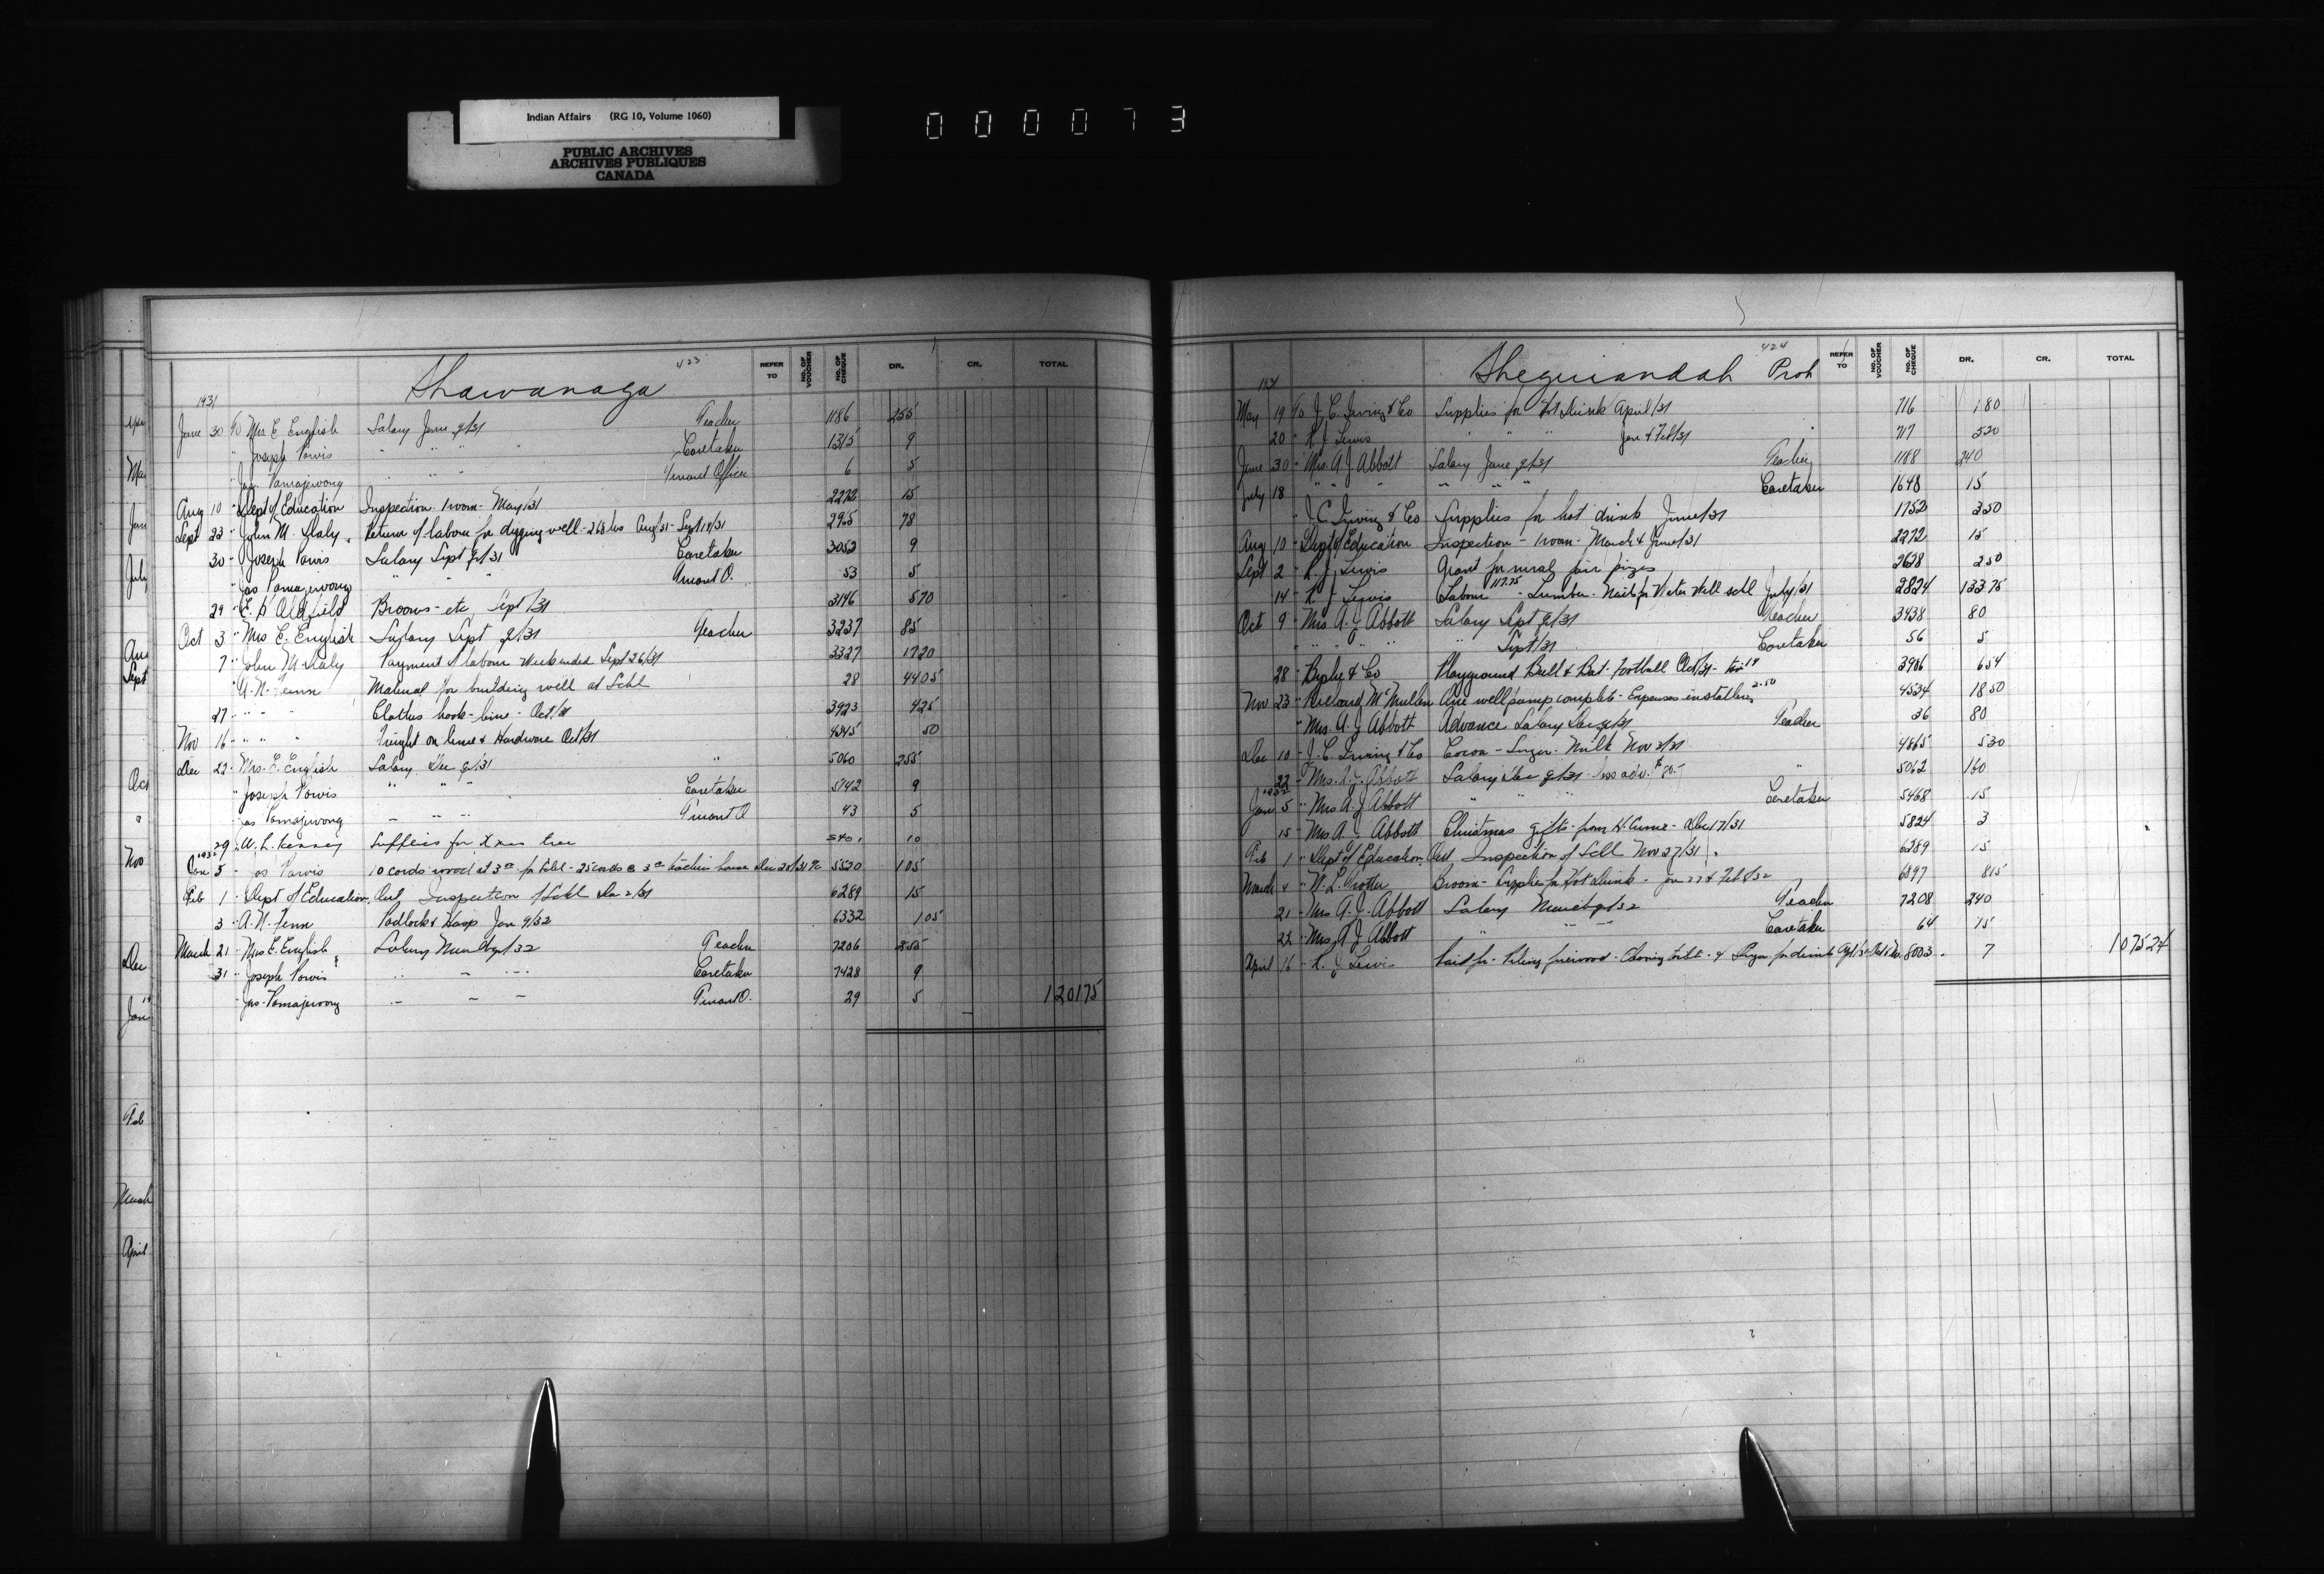 Indian Affairs (RG 10, Volume 1060)
PUBLIC ARCHIVES
ARCHIVES PUBLIQUES
CANADA
000073
Shawanaga 423
REFER TO NO. OF VOUCHER NO. OF CHEQUE DR. CR. TOTAL
1931
June 30 To Mrs E English Salary June q/31 Teacher 1186 255
" Joseph Pawis " " " Caretaker 1315 9
" Jas Pamajewong " " Truant Officer 6 5
Aug 10 " Dept of Education Inspection 1 room - May/31 2272 15
Sept 23 " John M. Daly Return of labour for digging well - 268 hrs Aug/31 - Sept 19/31 2925 78
30 " Joseph Pawis Salary Sept q/31 Caretaker 3052 9
" Jas Pamajewong " " " Truant O. 53 5
29 " E. D. Oldfield Brooms - etc Sept/31 3146 5 70
Oct 3 " Mrs E. English Salary Sept q/31 Teacher 3237 85
7 " John M Daly Payment of labour week ended Sept 26/31 3327 17 20
" A. N. Fenn Material for building well at Schl 28 44 05
27 " " " Clothes hook - lime - Oct/31 3923 4 25
Nov 16 " " " " Freight on lime & Hardware Oct/31 4345 50
Dec 22 " Mrs. E. English Salary Dec q/31 " 5060 255
" Joseph Pawis " " " Caretaker 5142 9
" Jas Pamajewong " " " Truant O 43 5
29 " W. L. Kenney Supplies for Xmas tree 5401 10
1932
Jan 5 " Jos Pawis 10 cords wood at 3 00 for Schl - 25 cords @ 3 00 teachers house Dec 28/31 5520 105
Feb 1 " Dept of Education, Ont Inspection of Schl Dec 2/31 6289 15
3 " A. N. Fenn Padlock & Hasp Jan 9/32 6332 1 05
March 21 " Mrs E. English Salary March q/32 Teacher 7206 255
31 " Joseph Pawis " " " Caretaker 7428 9
" Jas. Pamajewong " " " Truant O. 29 5 1201 75
Sheguiandah Prot 424
REFER TO NO. OF VOUCHER NO. OF CHEQUE DR. CR. TOTAL
1931
May 19 To J. C. Irving & Co Supplies for Hot Drink April/31 716 1 80
20 " R. J. Lewis " " " Jan & Feb/31 717 5 20
June 30 " Mrs. A. J. Abbott Salary June q/31 Teacher 1188 240
July 18 " " " " " " " Caretaker 1648 15
" J. C. Irving & Co Supplies for hot drink June/31 1752 3 50
Aug 10 " Dept of Education Inspection - 1 room - March & June/31 2272 15
Sept 2 " R. J. Lewis Grant for rural fair prizes 2628 2 50
14 " R. J. Lewis Labour 117.75 - Lumber - Nails for Water Well schl July/31 2824 133 75
Oct 9 " Mrs A. J. Abbott Salary Sept q/31 Teacher 3438 80
" " " " " Sept/31 Caretaker 56 5
28 " & Co Playground Ball & Bat - Football Oct/31 3906 6 54
Nov 23 " McMullen One well pump complete - Expenses installing 2.50 4534 18 50
" Mrs. A. J. Abbott Advance Salary Dec q/31 Teacher 36 80
Dec 10 " J. C. Irving & Co Cocoa - Sugar - Milk Nov 3/31 4865 5 30
22 " Mrs. A. J. Abbott Salary Dec q/31 - less adv. $80.- " 5062 160
1932
Jan 5 " Mrs A J Abbott " " " Caretaker 5468 15
15 " Mrs A. J. Abbott Christmas gifts - from Dec 17/31 5824 3
Feb 1 " Dept of Education, Ont Inspection of Schl Nov 27/31 6289 15
March 4 " N. L. Trotter Broom - Supplies for Hot Drink - Jan 27 & Feb 8/32 6897 8 15
21 " Mrs A. J. Abbott Salary March q/32 Teacher 7208 240
22 " Mrs A J Abbott " " " Caretaker 64 15
April 16 " R. J. Lewis Paid for - Piling firewood - & Sugar for drink 8003 7 1075 24
April
May
June
July
Aug
Sept
Oct
"
Nov
Dec
Jan
Feb
March
April